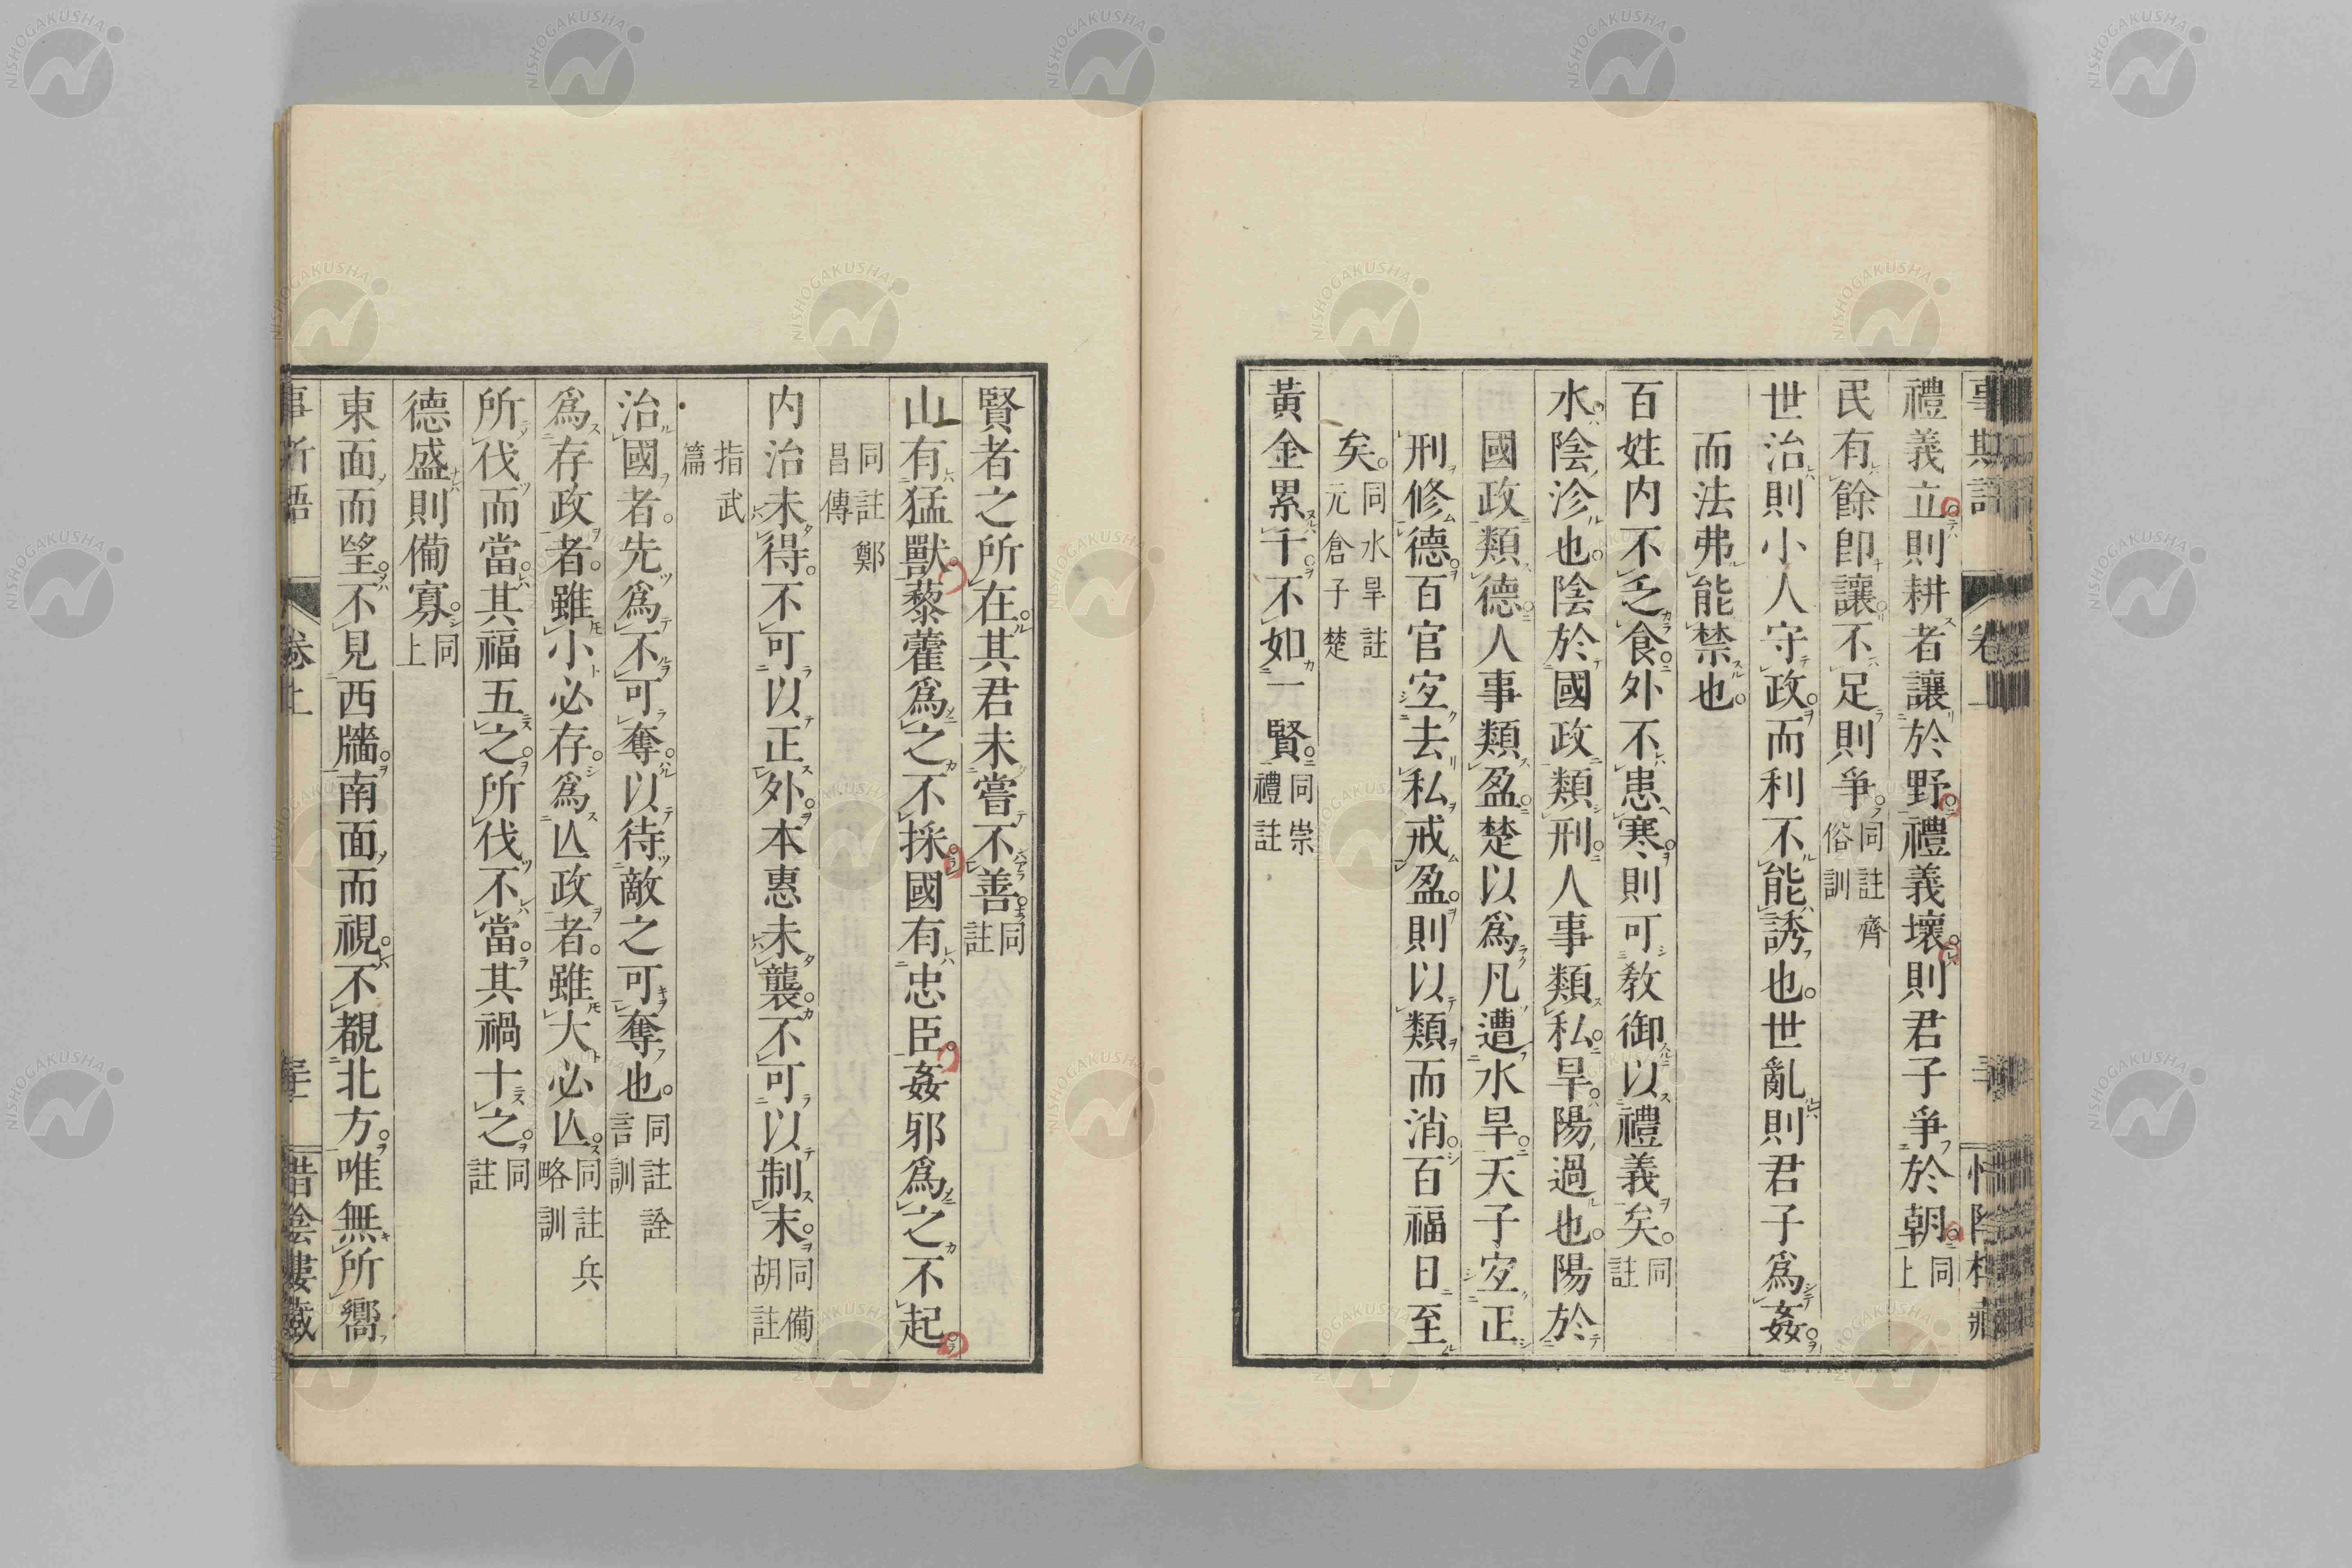 禮義立則耕者讓於野禮義壞則君子爭於朝同上
民有餘卽讓不足則爭同註齊俗訓
世治則小人守政而利不能誘也世亂則君子爲姦
而法弗能禁也
百姓内不乏食外不患寒則可教御以禮義矣同註
水陰沴也陰於國政類刑人事類私旱陽過也陽於
國政類德人事類盈楚以爲凡遭水旱天子宐正
刑修德百官宐去私戒盈則以類而消百福日至
矣同水旱註元倉子楚
黃金累千不如一賢同崇禮註
賢者之所在其君未嘗不善同註
山有猛獸藜藿爲之不採國有忠臣姦邪爲之不起
同註鄭昌傳
内治未得不可以正外本惠未襲不可以制末同備胡註
指武篇
治國者先爲不可奪以待敵之可奪也同註詮言訓
爲存政者雖小必存爲亾政者雖大必亾同註兵略訓
所伐而當其福五之所伐不當其禍十之同註
德盛則備寡同上
東面而望不見西牆南面而視不覩北方唯無所嚮
卷上
惜陰樓藏
NISHOGAKUSHA